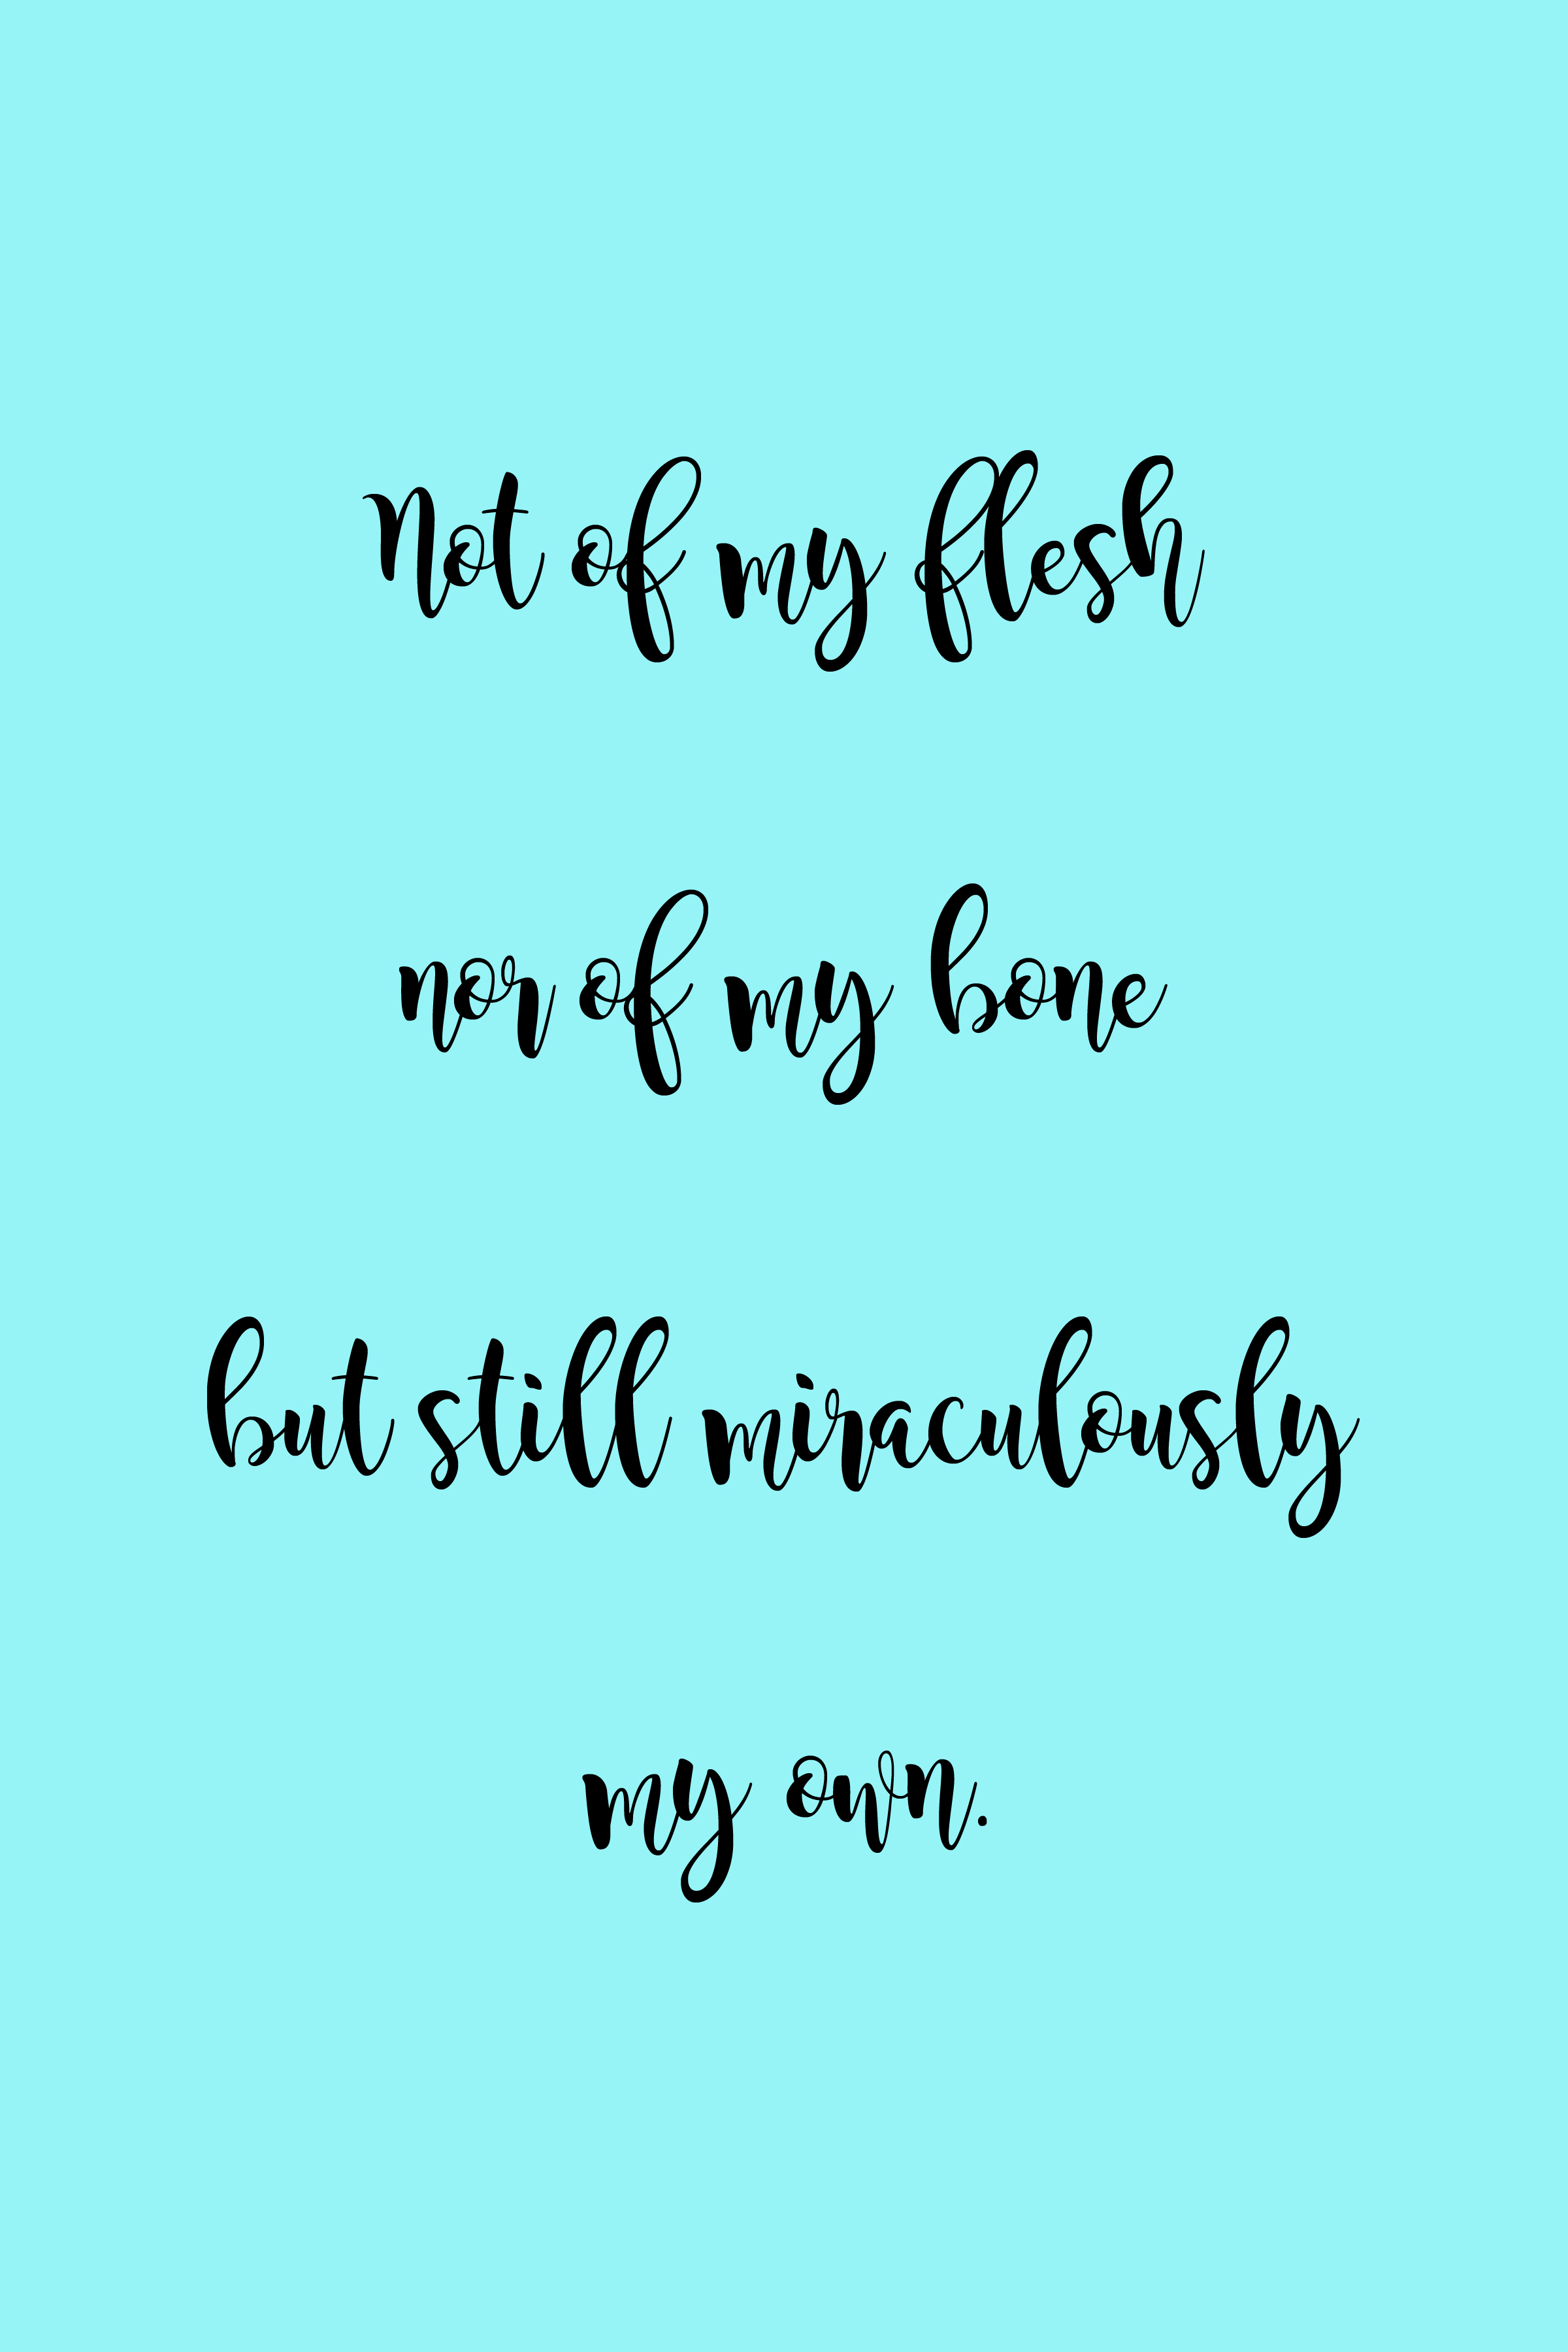 Not of my flesh
nor of my bone
but still miraculously
my own.